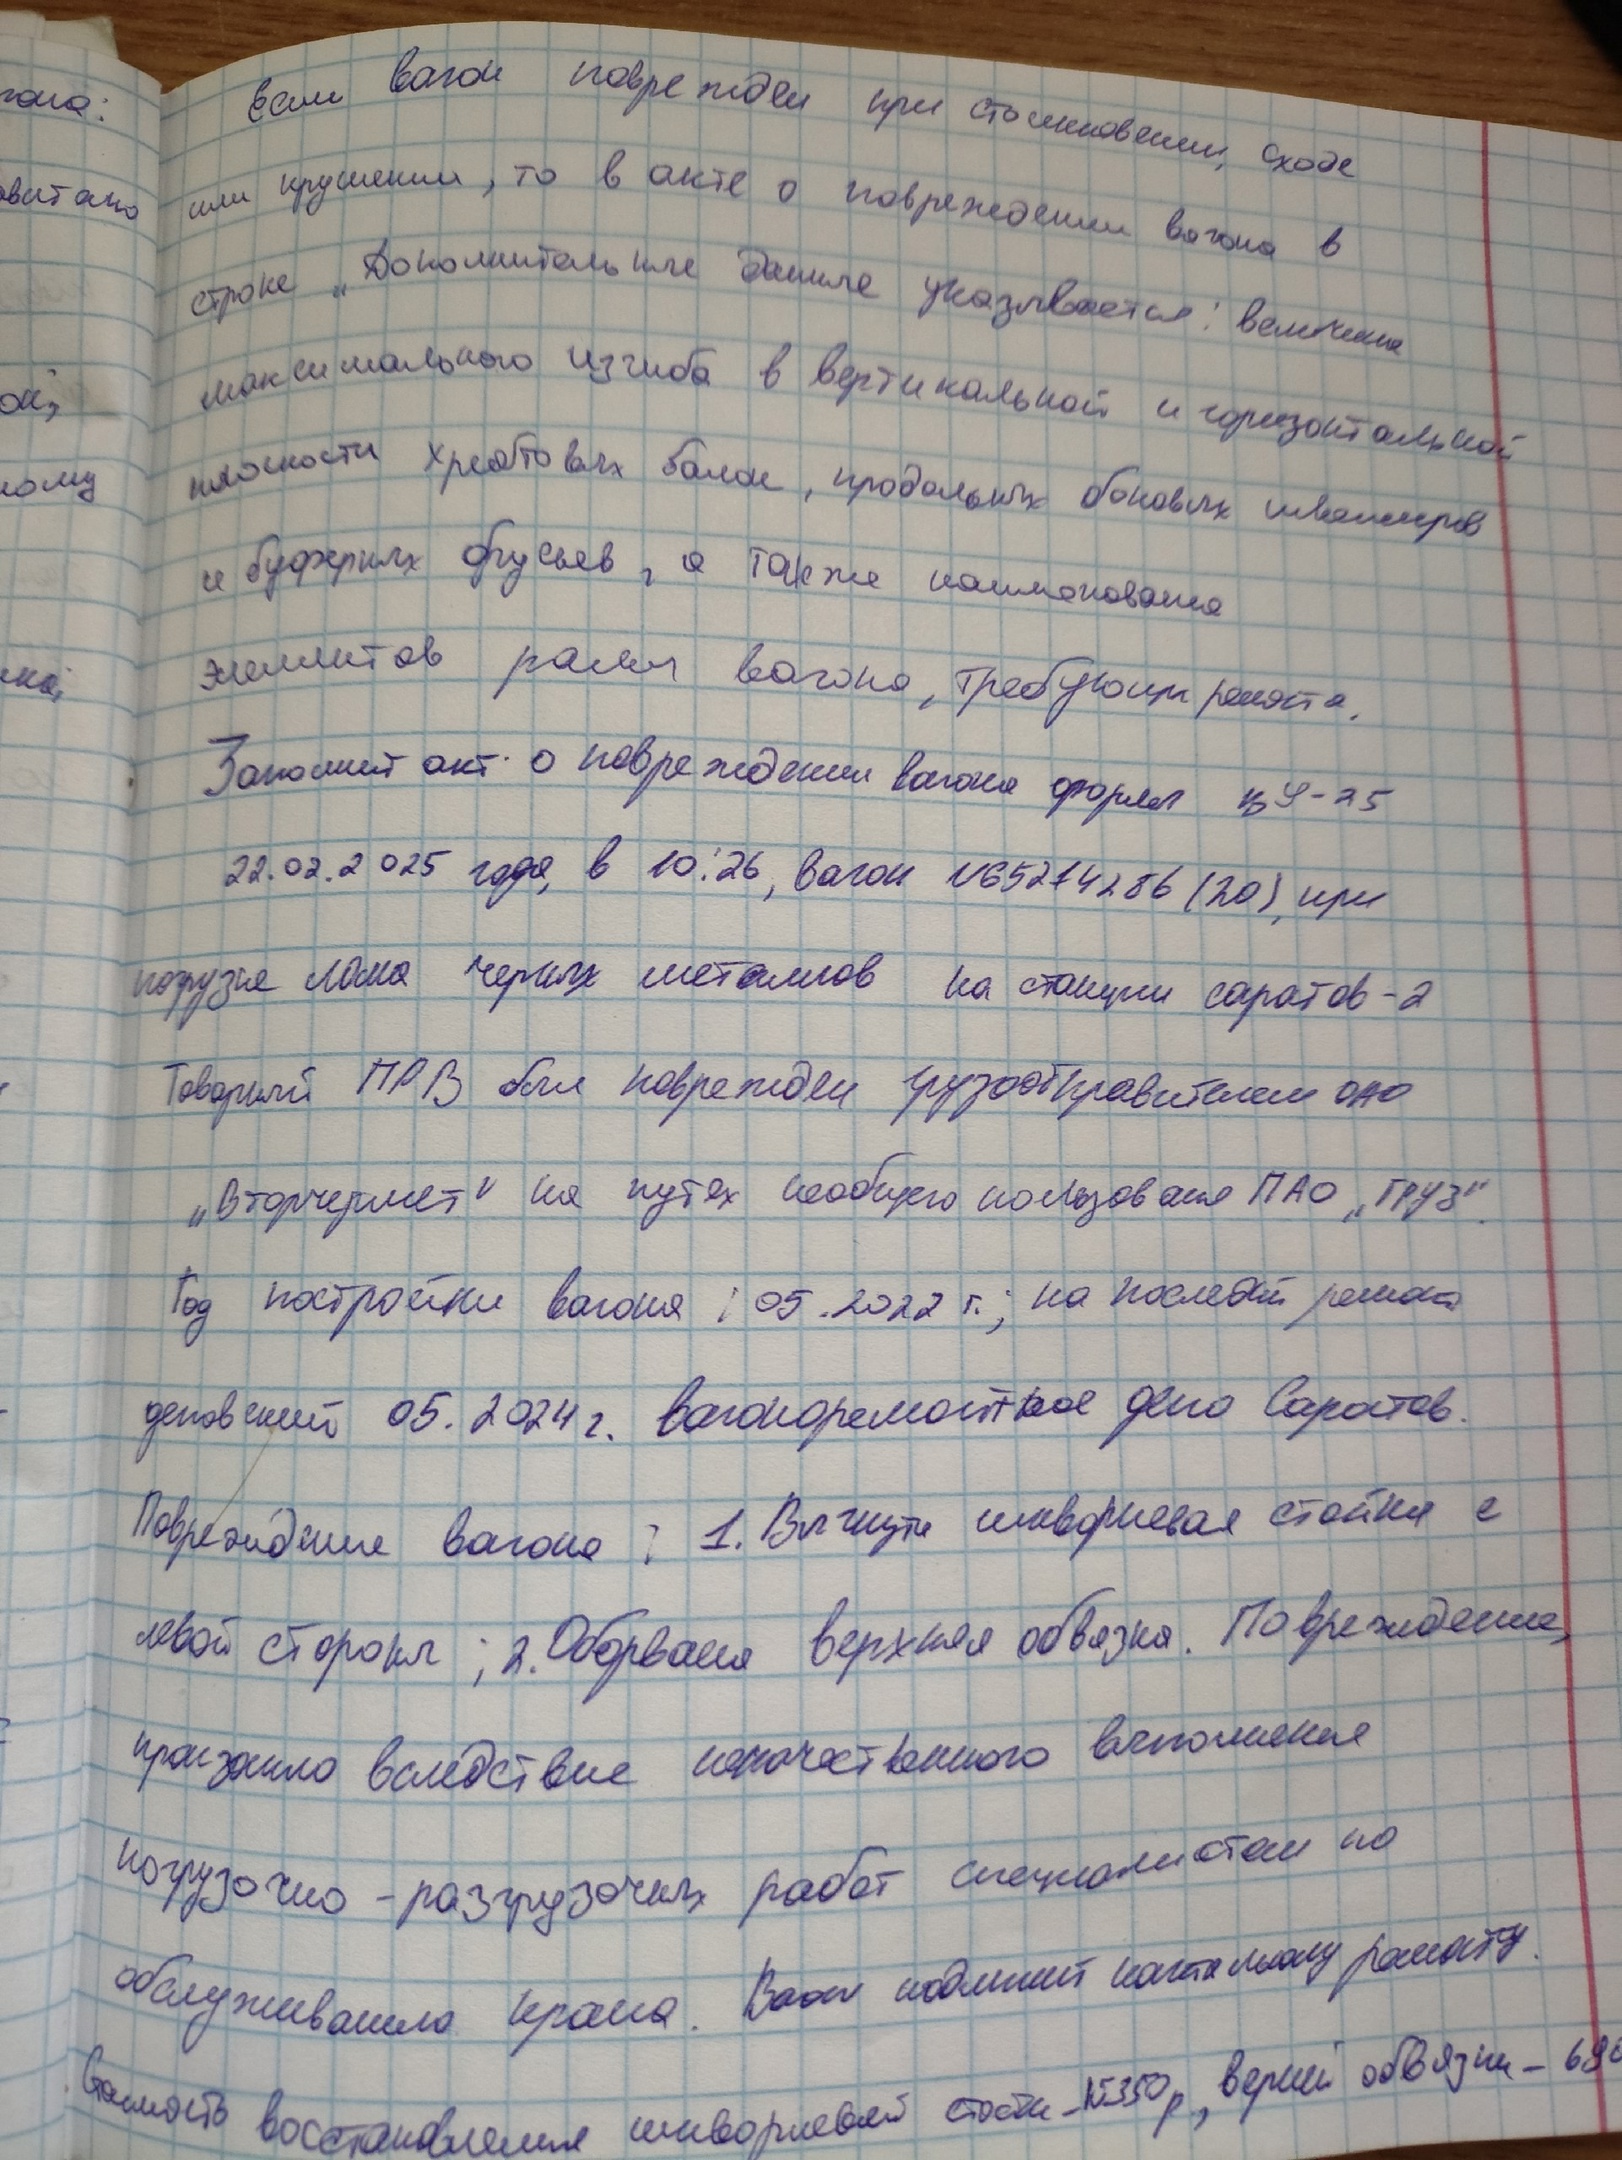 гона:
овитано
ой,
ному
Если вагон поврежден при столкновении, сходе
или крушении, то в акте о повреждении вагона в
строке „Дополнительные данные указывается: величина
максимального изгиба в вертикальной и горизонтальной
плоскости хребтовых балок, продольных боковых швеллеров
и буферных брусьев, а также наименования
элементов рамы вагона, требующих ремонта.
Заполнит акт о повреждении вагона формы ВУ-25
22.02.2025 года, в 10:26, вагон N65274286 (20), при
погрузке лома черных металлов на станции саратов-2
Товарный ПРВ был поврежден грузоотправителем ОАО
„Вторчермет" на путях необщего пользования ПАО „ГРУЗ".
Год постройки вагона: 05.2022 г.; на послед ремонт
деповский 05.2024г. вагоноремонтное депо Саратов.
Повреждение вагона: 1. Выгнута шкворневая стойка с
левой стороны; 2. Оборвана верхняя обвязка. Повреждение,
произошло вследствие некачественного выполнения
погрузочно-разгрузочных работ специалистом по
обслуживанию крана. Вагон подлежит капитальному ремонту.
Стоимость восстановления шкворневой стойки - 350р, верхней обвязки - 69